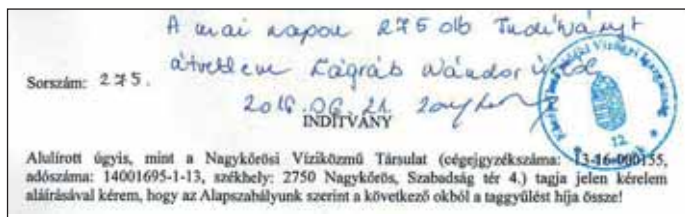 A mai napon 275 db Indítványt
átvettem Zágráb Nándor úrtól
Sorszám: 275.
2016.06.21
INDÍTVÁNY
12
Alulírott úgyis, mint a Nagykőrösi Víziközmű Társulat (cégejgyzékszáma: 13-16-000155,
adószáma: 14001695-1-13, székhely: 2750 Nagykőrös, Szabadság tér 4.) tagja jelen kérelem
aláírásával kérem, hogy az Alapszabályunk szerint a következő okból a taggyűlést híja össze!